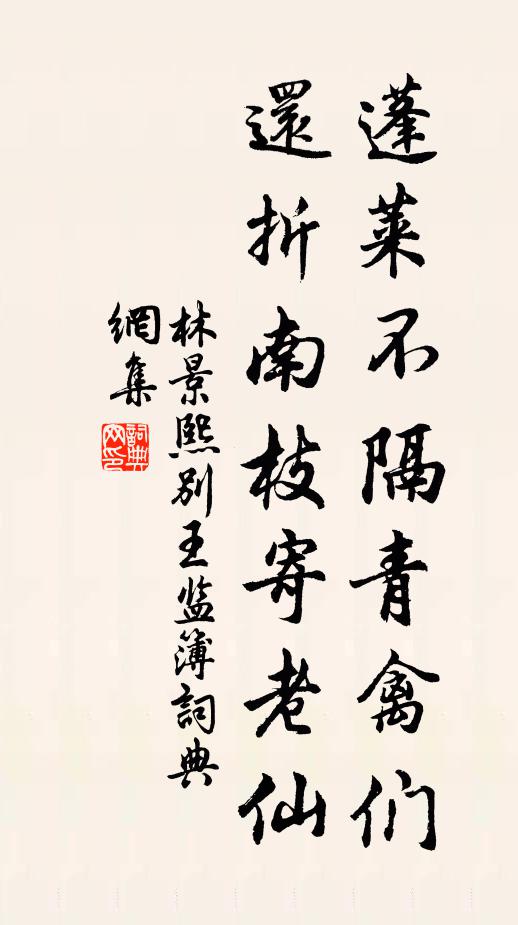 蓬莱不隔青禽们
還折南枝寄老仙
林景熙别王监簿詞典
網集
詞典网印